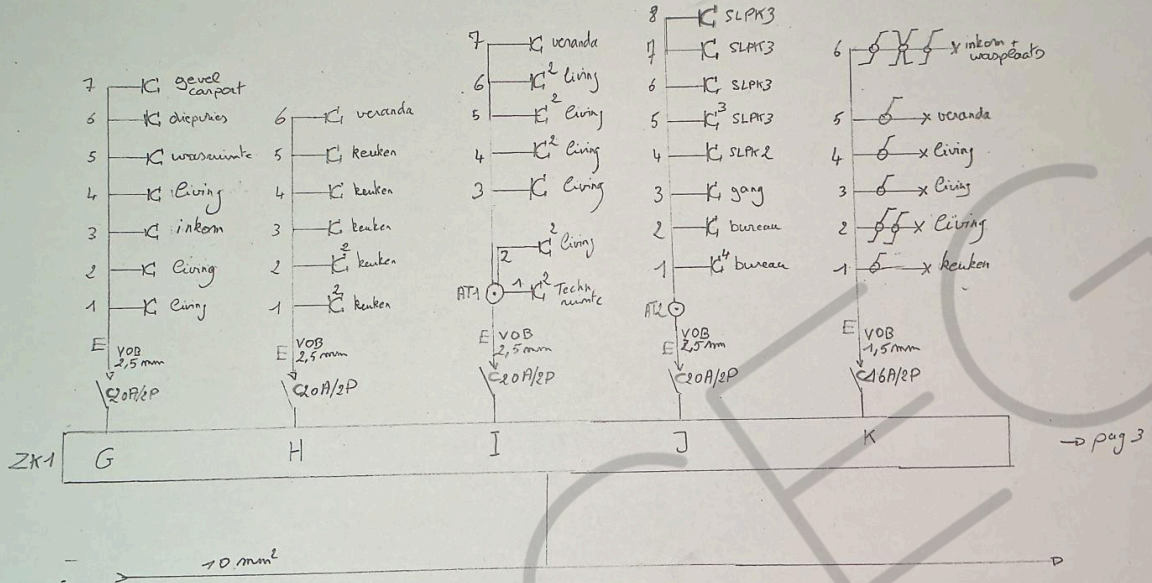 7 gevel carport
6 diepvries
5 wasruimte
4 living
3 inkom
2 living
1 living
E VOB 2,5 mm
C20A/2P
6 veranda
5 keuken
4 keuken
3 keuken
2 2 keuken
1 2 keuken
E VOB 2,5 mm
C20A/2P
7 veranda
6 2 living
5 2 living
4 2 living
3 living
2 2 living
AT1 1 2 Techn ruimte
E VOB 2,5 mm
C20A/2P
8 SLPK3
7 SLPK3
6 SLPK3
5 3 SLPK3
4 SLPK2
3 gang
2 bureau
1 4 bureau
AT2
E VOB 2,5 mm
C20A/2P
6 x inkom + wasplaats
5 x veranda
4 x living
3 x living
2 x living
1 x keuken
E VOB 1,5 mm
C16A/2P
ZK1 G H I J K → pag 3
10 mm²
CEG